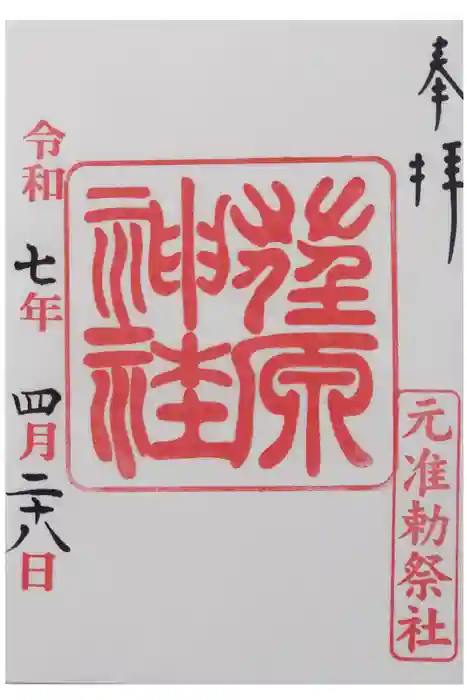 奉拝
荏原
神社
元准勅祭社
令和七年四月二十八日